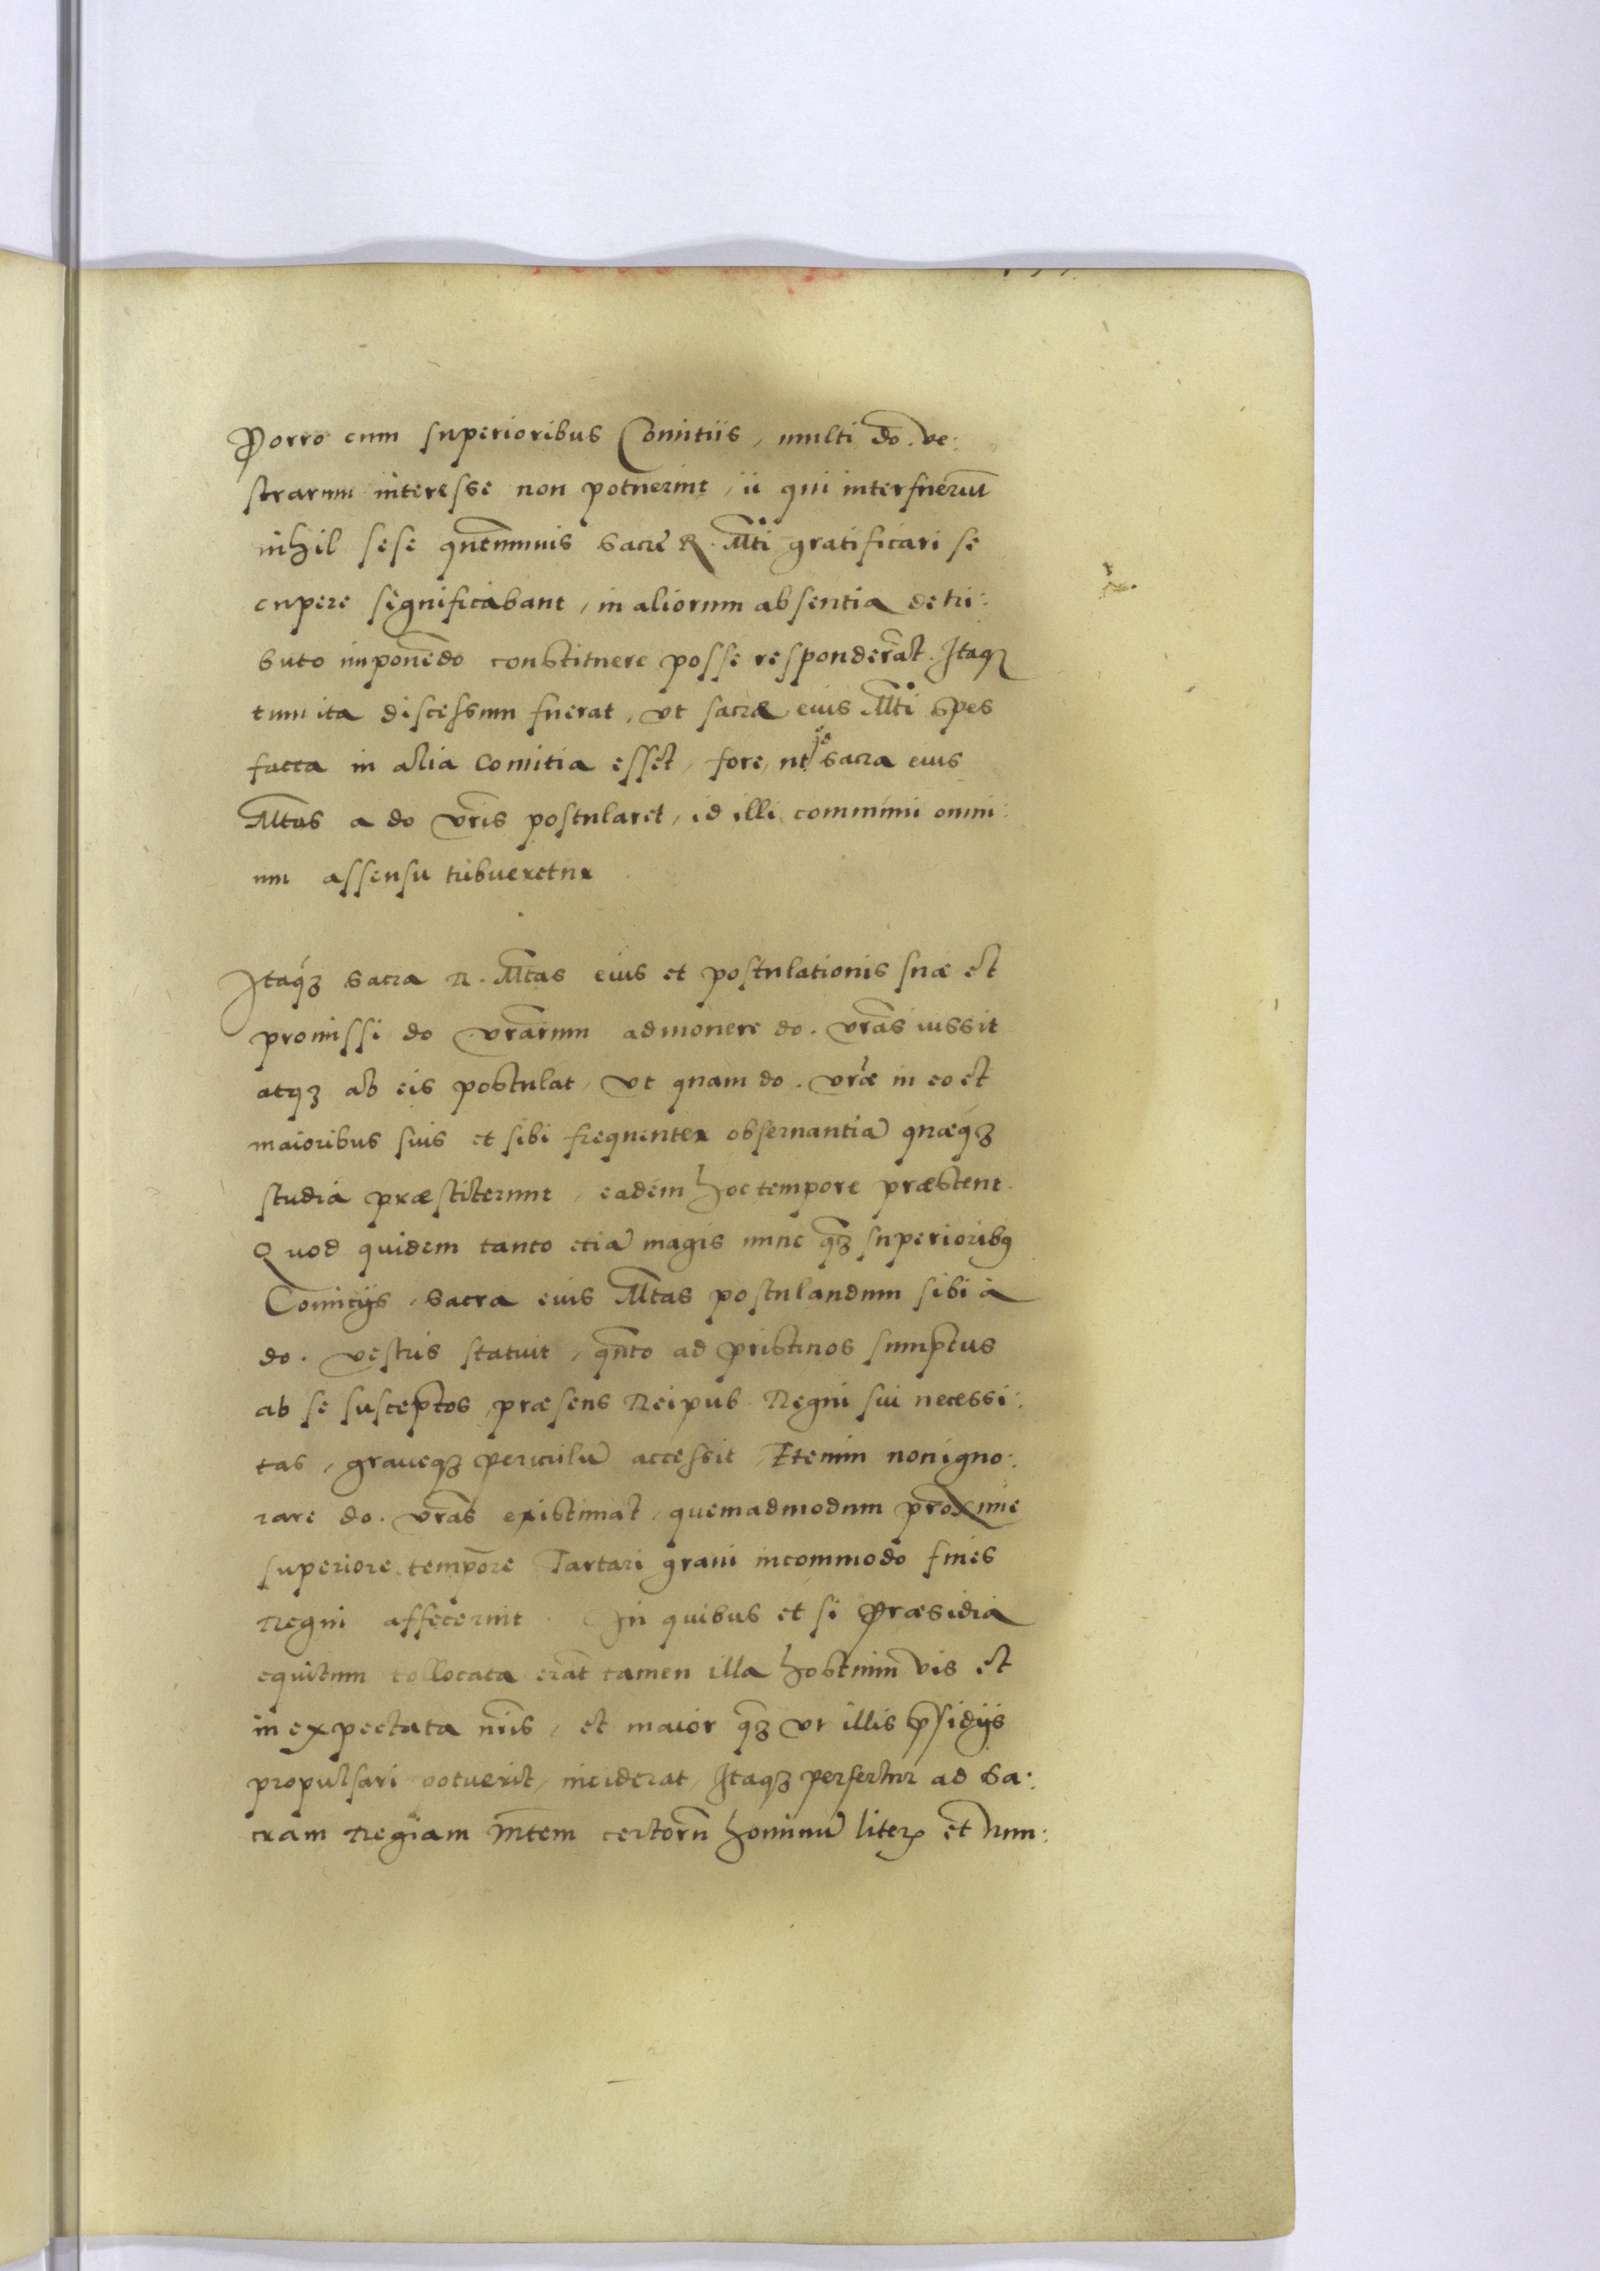 Porro cum superioribus Comitiis, multi do. ve:
strarum interesse non potuerint, ii qui interfuerūt
nihil sese quēmuis Sacræ R. Mti gratificari se
cupere significabant, in aliorum absentia de tri:
buto imponēdo constituere posse responderāt. Itaqȝ
tum ita discessum fuerat, vt sacræ eius Mti spes
facta in alia Comitia esset, fore, ut Sacra eius
Mtas a do vr̄is postularet, id illi communi omni:
um assensu tribueretur
Itaqȝ Sacra R. Mtas eius et postulationis suæ et
promissi do vr̄arum admonere do. vr̄as iussit
atqȝ ab eis postulat, vt quam do. vr̄æ in eo et
maioribus suis et sibi frequenter obseruantiā quæqȝ
studia præstiterunt, eadem hoc tempore præstent.
Quod quidem tanto etiā magis nunc qȝ superioribꝰ
Comitijs, Sacra eius Mtas postulandum sibi à
do. vestris statuit, qn̄to ad pristinos sumptus
ab se susceptos præsens Reipub. Regni sui necessi:
tas, graueqȝ periculū accessit, Etenim non igno:
rare do. vr̄as existimat, quemadmodum proxime
superiore tempore Tartari graui incommodo fines
Regni affecerint. In quibus et si Præsidia
equitum collocata erāt tamen illa hostium vis et
inexpectata nr̄is, et maior qȝ vt illis p̄sidijs
propulsari potuerit, inciderat, Itaqȝ perfertur ad Sa:
cram Regiam Mtem certorū hominū literꝭ et nun: